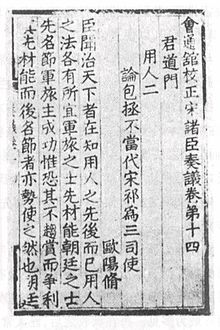 會通舘校正宋諸臣奏議卷第十四
君道門
用人二
論包拯不當代宋祁爲三司使
歐陽脩
臣聞治天下者在知用人之先後而已用人
之法各有所宜軍旅之士先材能朝廷之士
先名節軍旅主成功惟恐其不趨賞而爭利
先材能而後名節者亦勢使之然也朝廷